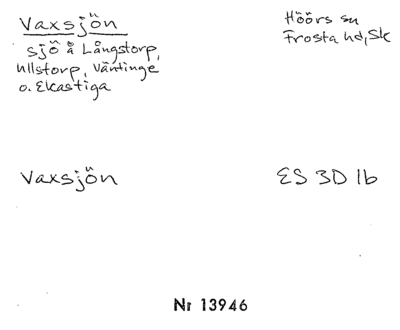 Vaxsjön
sjö å Långstorp,
Ullstorp, Väntinge
o. Ekastiga
Höörs sn
Frosta hd, Sk
Vaxsjön
ES 3D 1b
Nr 13946